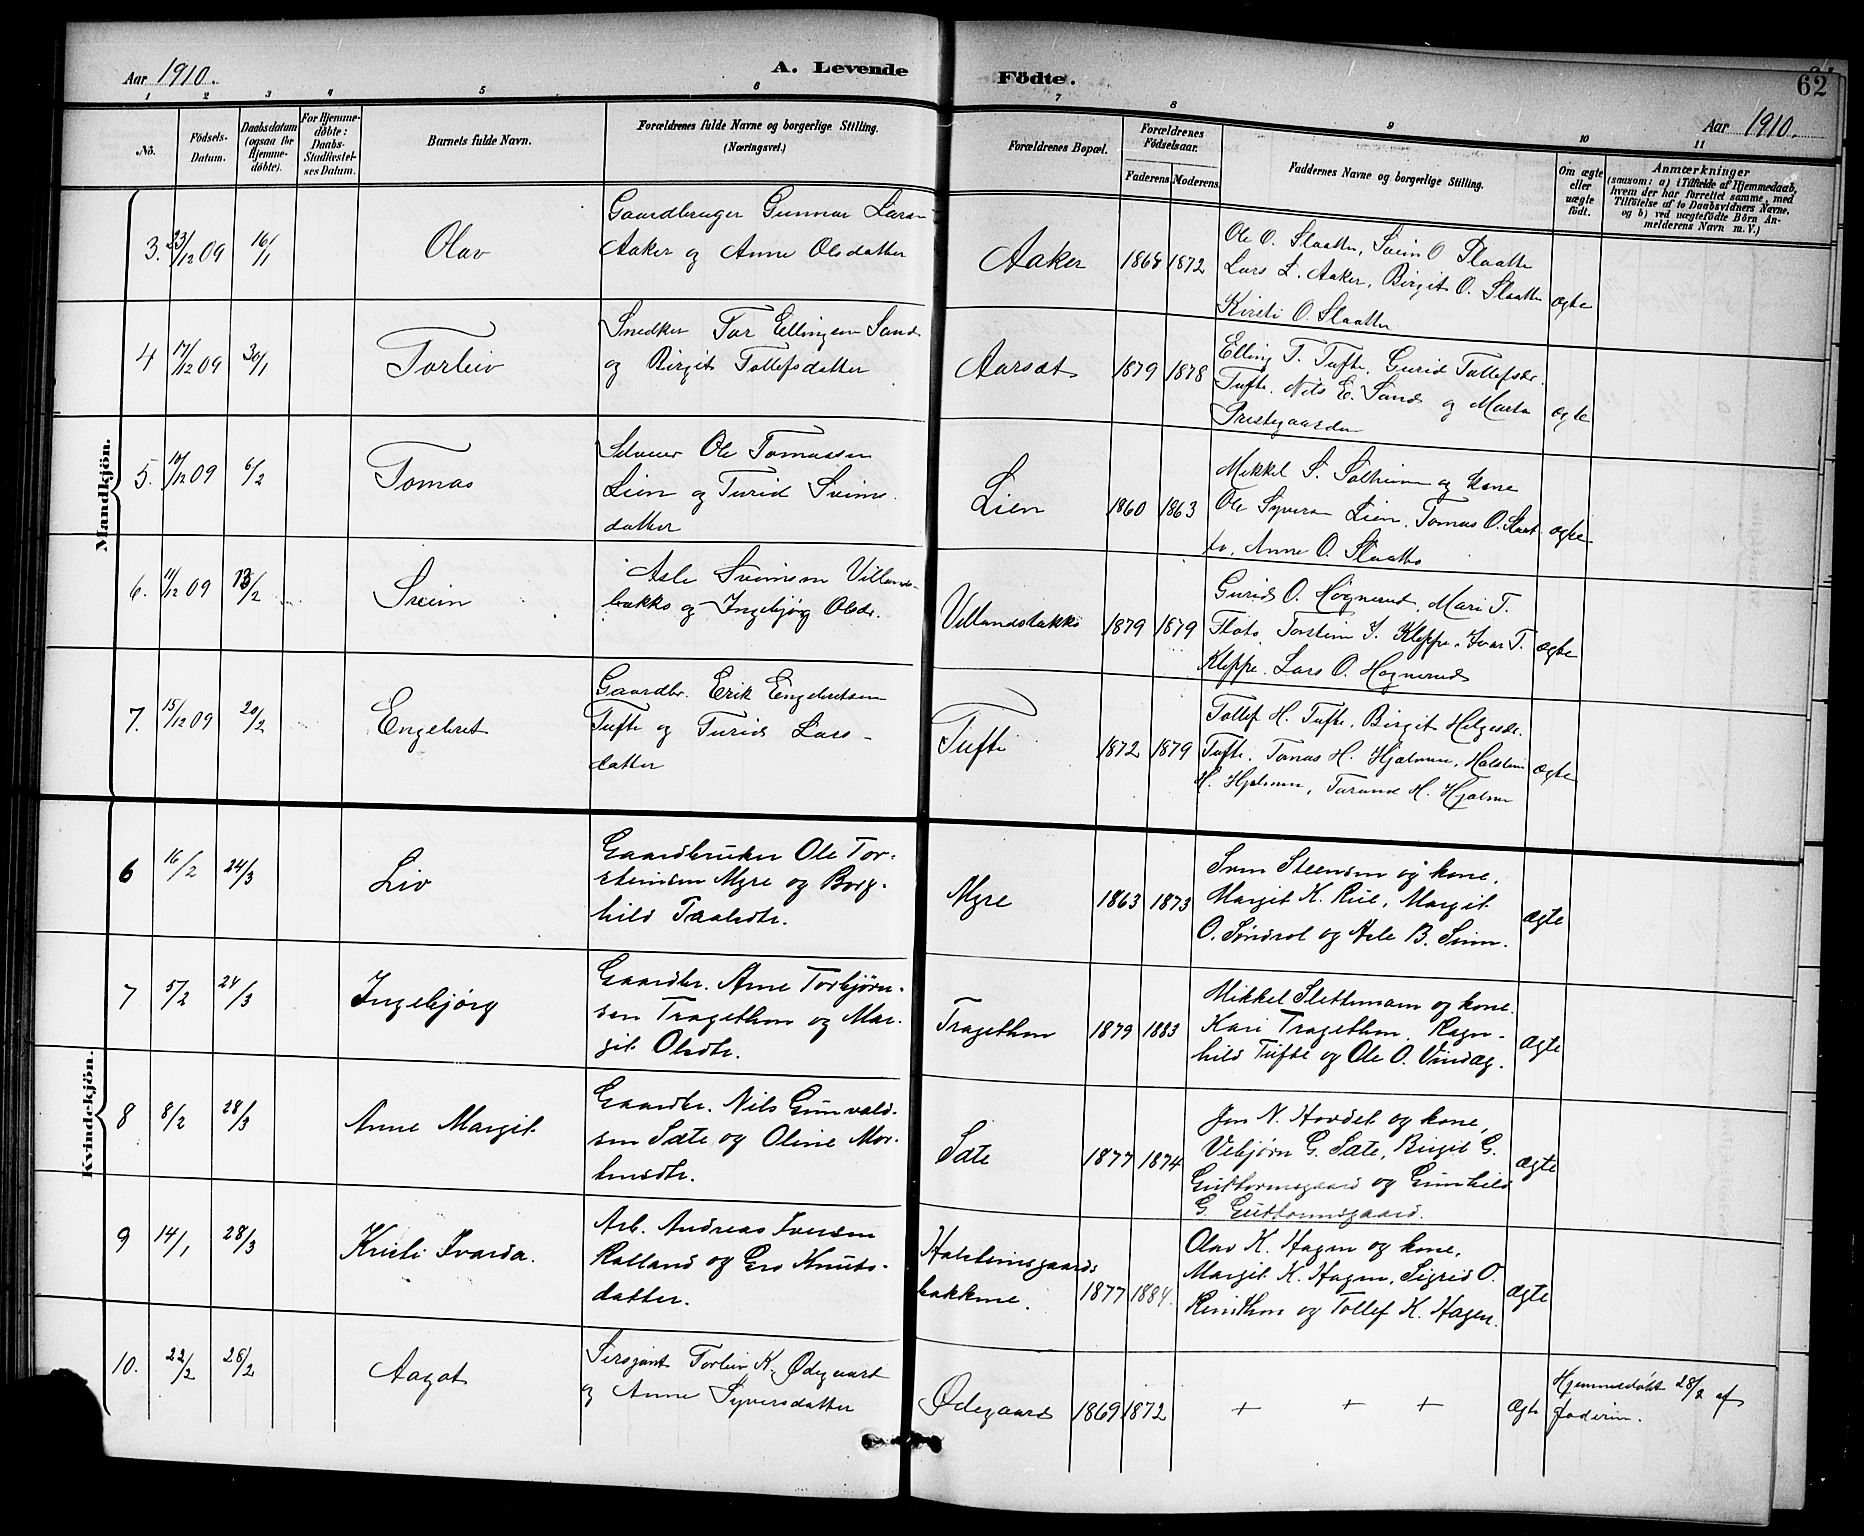 Aar 1910.
A. Levende Födte.
62
Aar 1910.
1 2 3 4 5 6 7 8 9 10 11
No.
Födsels-Datum.
Daabsdatum (ogsaa for Hjemme-döbte).
For Hjemme-döbte: Daabs-Stadfæstel-ses Datum.
Barnets fulde Navn.
Forældrenes fulde Navne og borgerlige Stilling.
(Næringsvei.)
Forældrenes Bopæl.
Forældrenes Födselsaar.
Faderens Moderens
Faddernes Navne og borgerlige Stilling.
Om ægte eller uægte födt.
Anmærkninger
(saasom: a) i Tilfælde af Hjemmedaab,
hvem der har forrettet samme, med
Tilföielse af to Daabsvidners Navne,
og b) ved uægtefödte Börn An-
melderens Navn m. V.)
Mandkjön.
3. 23/12 09 16/1 Olav
Gaardbruger Gunnar Lars-
Aaker og Anne Olsdatter
Aaker 1868 1872
Ole O. Slaatto, Svein O Slaatto
Lars L. Aaker, Birgit O. Slaatto
Kirsti O. Slaatto
ægte
4 17/12 09 30/1 Torleiv
Snedker Tor Ellingsen Sand
og Birgit Tollefsdatter
Aarsæt 1879 1878
Elling T. Tufte, Gurid Tollefsdr.
Tufte, Nils E. Sand og Marta
Prestegaarden
ægte
5. 10/12 09 6/2 Tomas
Selveier Ole Tomassen
Lien og Turid Sveins-
datter
Lien 1860 1863
Mikkel S. Solheim og kone
Ole Syvers Lien, Tomas O. Slaat
to, Anne O. Slaatto
ægte
6. 11/12 09 13/2 Svein
Asle Sveinsen Villands-
bakko og Ingebjørg Olsdr.
Villandsbakko 1879 1879
Gurid O. Høgnerud, Mari T.
Floto, Torstein I. Kleppe, Ivar T.
Kleppe, Lars O. Høgnerud
ægte
7. 15/12 09 20/2 Engebret
Gaardbr. Erik Engebretsen
Tufte og Turid Lars-
datter
Tufte 1872 1879
Tollef H. Tufte, Birgit Helgesdr.
Tufte, Tomas H. Hjælmen, Halstein
H. Hjælmen, Turund H. Hjælme
ægte
Kvindekjön.
6 16/2 24/3 Liv
Gaardbruker Ole Tor-
steinsen Myre og Borg-
hild Taalsdtr.
Myre 1863 1873
Sven Steensen og kone,
Margit K. Rue, Margit
O. Søndrol og Asle B. Sinn.
ægte
7 5/2 24/3 Ingebjørg
Gaardbr. Arne Torbjørn-
sen Tragethon og Mar-
git Olsdtr.
Tragethon 1879 1883
Mikkel Slettemoen og kone
Kari Tragethon, Ragn-
hild Tufte og Ole O. Vindeg.
ægte
8 8/2 28/3 Anne Margit
Gaardbr. Nils Gunvald-
sen Sæte og Oline Mor-
tensdtr.
Sæte 1877 1874
Jon N. Hovdet og kone,
Vebjørn G. Sæte, Birgit G.
Guttormsgaard og Gunhild
G. Guttormsgaard.
ægte
9 14/1 28/3 Kristi Ivarda.
Arb. Andreas Iversen
Rolland og Gro Knuts-
datter.
Halsteinsgaards
bakkene. 1877 1884.
Olav K. Hagen og kone,
Margit K. Hagen, Sigrid O.
Rimthon og Tollef K. Hagen.
ægte
10. 22/2 28/2 Aagot
Sersjant Torleiv K. Ødegaard
og Anne Syversdatter
Ødegaard 1869 1872
+ + +
ægte
Hjemmedøbt 28/2 af
faderen.